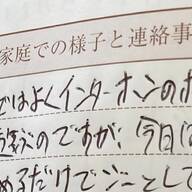 家庭での様子と連絡事
ではよくインターホンのボ
のですが、今日は
めるだけでジーとして